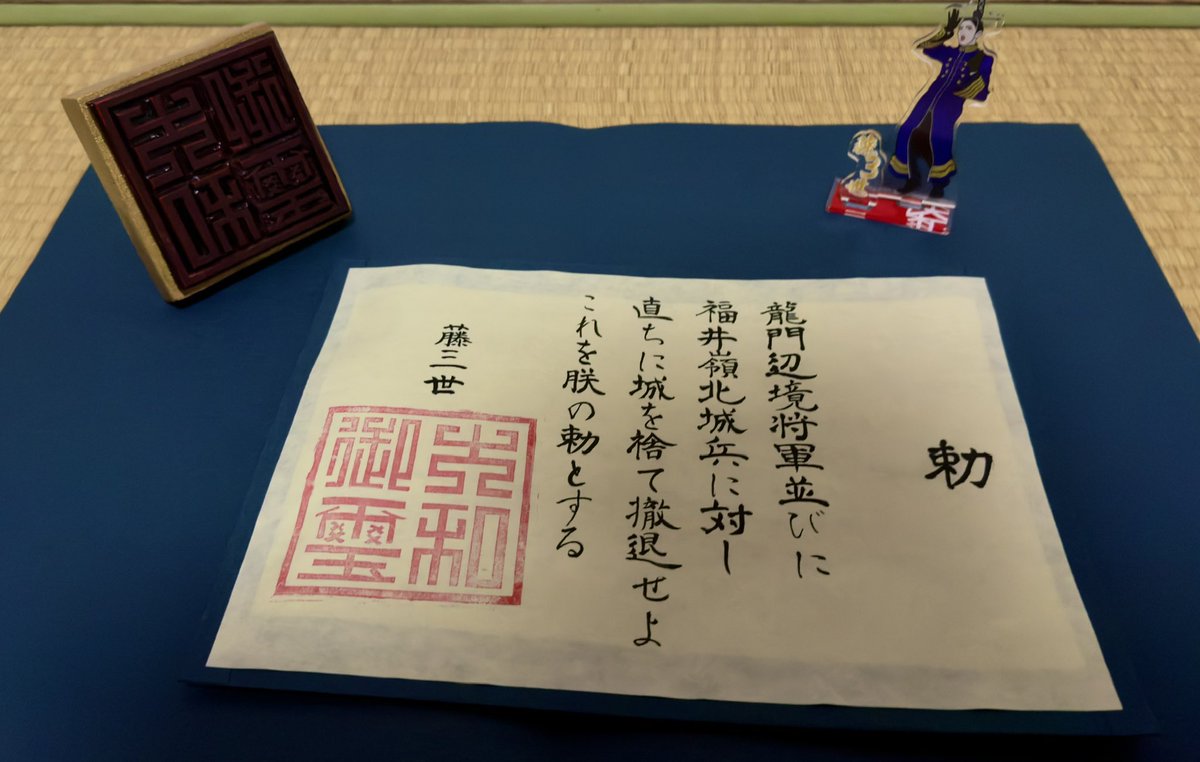 勅
龍門辺境将軍並びに
福井嶺北城兵に対し
直ちに城を捨て撤退せよ
これを朕の勅とする
藤三世
和
御璽